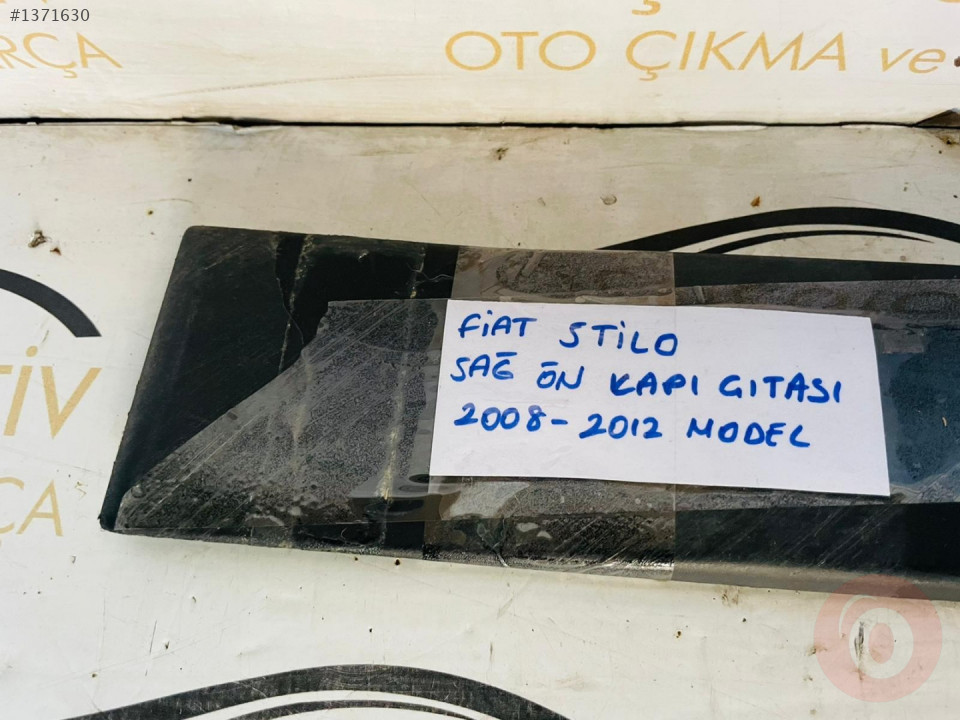 #1371630
ARÇA
OTO ÇIKMA ve
FİAT STİLO
SAĞ ÖN KAPI GITASI
2008-2012 MODEL
TİV
ÇA